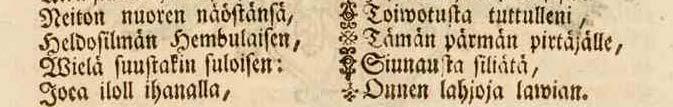 Neiton nuoren näöstänsä,
Heldosilmän Hembulaisen,
Wielä suustakin suloisen:
Joca iloll ihanalla,
Toiwotusta tuttulleni,
Tämän pärmän pirtäjälle,
Siunausta siliätä,
Onnen lahjoja lawian.